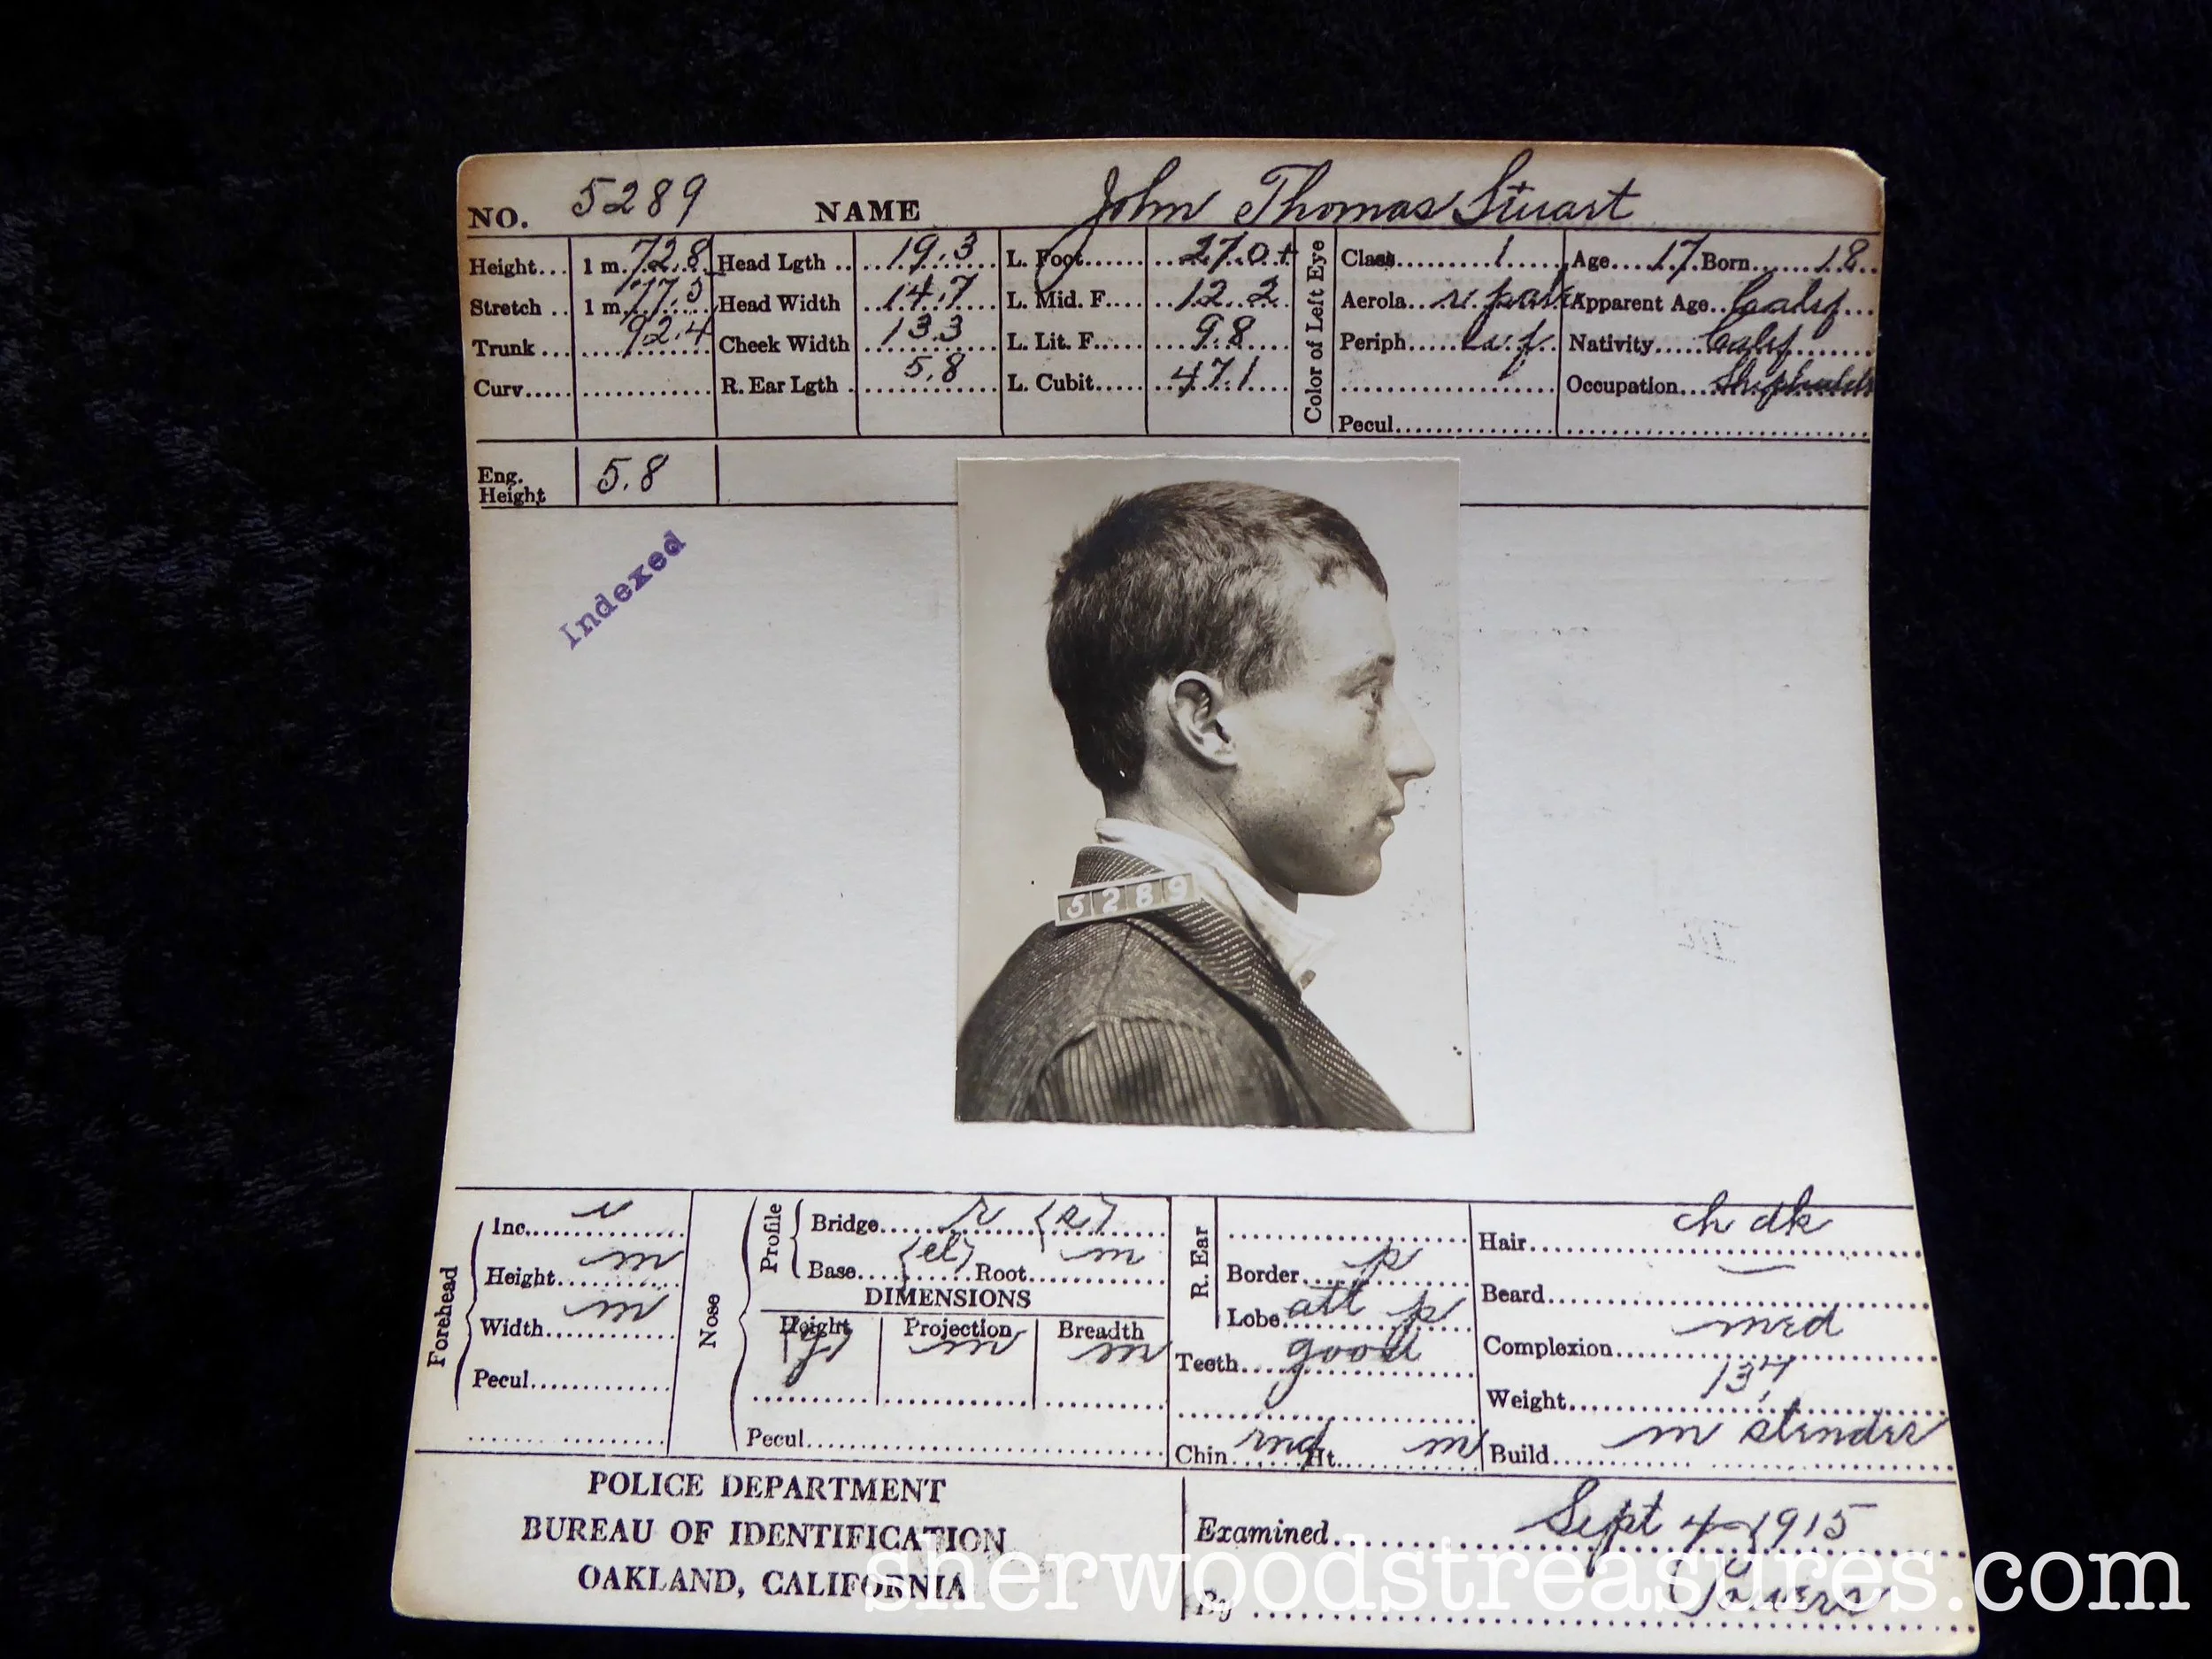 NO. 5289 NAME John Thomas Stuart
Height... 1 m. 72.8 Head Lgth .. 19.3 L. Foot...... 27.0+ Class.......... 1 Age.... 17 Born...... 18
Stretch .. 1 m. 77.5 Head Width 14.7 L. Mid. F.... 12.2 Aerola... Apparent Age.. Calif...
Trunk... 92.4 Cheek Width 13.3 L. Lit. F..... 9.8 Periph...... Nativity..... Calif
Curv..... R. Ear Lgth . 5.8 L. Cubit..... 47.1 Occupation....
Pecul..............
Color of Left Eye
Eng. Height 5.8
Indexed
5289
Forehead
Inc..............
Height.......... m
Width........... m
Pecul..............
Nose
Profile
Bridge........ r
Base.... {el} Root.......... m
DIMENSIONS
Height Projection Breadth
m m
Pecul..............
R. Ear
Border.... p
Lobe att p
Teeth.... good
Chin rnd Ht. m
Hair.............. ch dk
Beard.............. —
Complexion.......... med
Weight.............. 137
Build.......... m slender
POLICE DEPARTMENT
BUREAU OF IDENTIFICATION
OAKLAND, CALIFORNIA
Examined.......... Sept 4-1915
By ..............
sherwoodstreasures.com